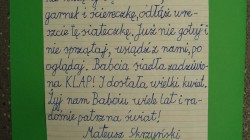 garnek i ściereczkę, odłóż wre-
szcie tę siateczkę. Już nie gotuj i
nie sprzątaj, usiądź z nami, po-
oglądaj. Babcia siadła zadziwio-
na KLAP! I dostała wielki kwiat.
Żyj nam Babciu wiele lat i ra-
dośnie patrz na świat!
Mateusz Skrzyński